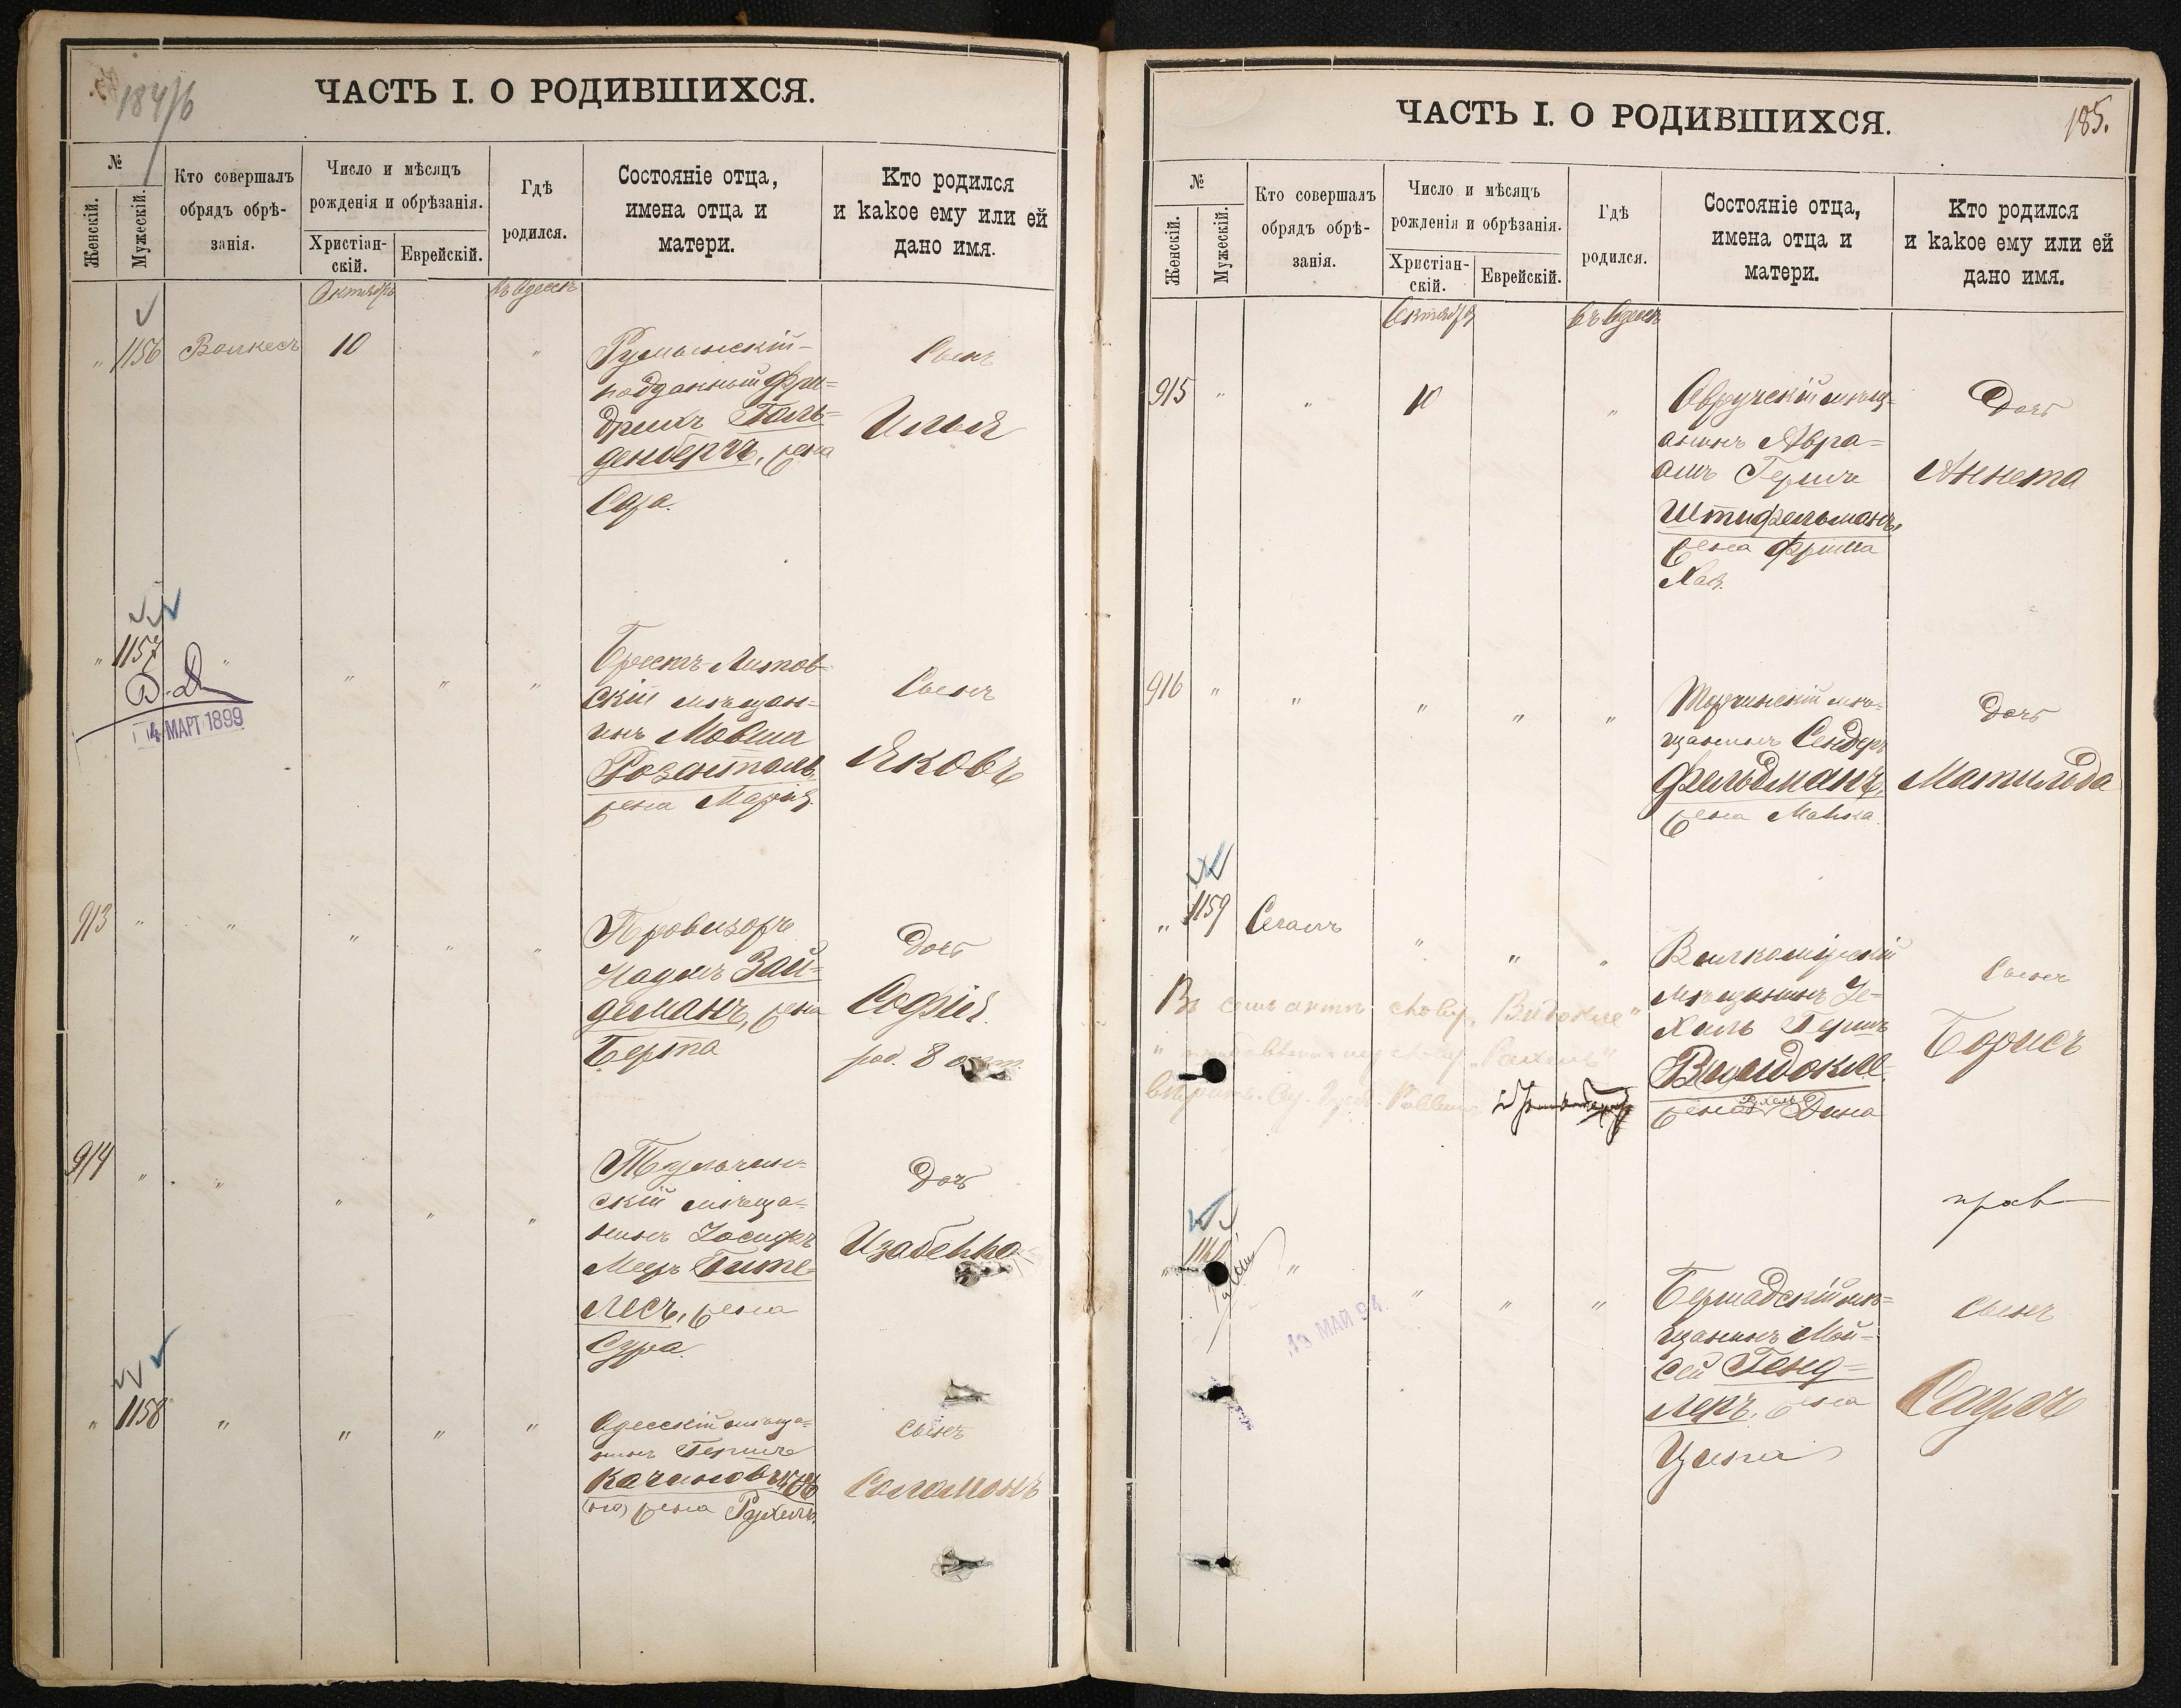 184/б
ЧАСТЬ I. О РОДИВШИХСЯ.
№
Женскій.
Мужескій.
Кто совершалъ
обрядъ обрѣ-
занія.
Число и мѣсяцъ
рожденія и обрѣзанія.
Христіан-
скій.
Еврейскій.
Гдѣ
родился.
Состояніе отца,
имена отца и
матери.
Кто родился
и какое ему или ей
дано имя.
Октябрь
въ Одессѣ
" 1156 Волкесъ 10 "
Румынскій-
подданный Фри=
дрихъ Голь=
денбергъ, жена
Сара.
Сынъ
Илья
" 1157 " " " "
14 МАРТ 1899
Брестъ-Литов-
скій мѣщан=
инъ Мовша
Розенталь,
жена Марія.
Сынъ
Яковъ
913 " " " " "
Провизоръ
Наумъ Зай=
деманъ, жена
Берта
Дочь
Софія.
род. 8 окт.
914 " " " " "
Тульчин=
скій мѣща=
нинъ Іосифъ
Мееръ Гите=
лесъ, жена
Сура.
Дочь
Изабелла
" 1158 " " " "
Одесскій мѣща=
нинъ Гершъ
Качиновскій
жена Рухель.
Сынъ
Соломонъ
185.
ЧАСТЬ I. О РОДИВШИХСЯ.
№
Женскій.
Мужескій.
Кто совершалъ
обрядъ обрѣ-
занія.
Число и мѣсяцъ
рожденія и обрѣзанія.
Христіан-
скій.
Еврейскій.
Гдѣ
родился.
Состояніе отца,
имена отца и
матери.
Кто родился
и какое ему или ей
дано имя.
Октября
въ Одессѣ
915 " " 10 "
Овручскій мѣщ=
анинъ Авра=
амъ Гершъ
Штифельманъ,
жена Фрима
Хая.
Дочь
Аннета
916 " " " " "
Торчинскій мѣ=
щанинъ Сендеръ
Фельдманъ,
жена Манка.
Дочь
Матильда
" 1159 Сегалъ " " "
Вилкомірскій
мѣщанинъ Іе=
хиль Гершъ
жена Дина
Сынъ
Борисъ
Въ семъ актѣ слову
" 1160 " " " "
13 МАЙ 94
Бершадскій мѣ=
щанинъ Мой=
сей Генд=
леръ, жена
Ципа
Сынъ